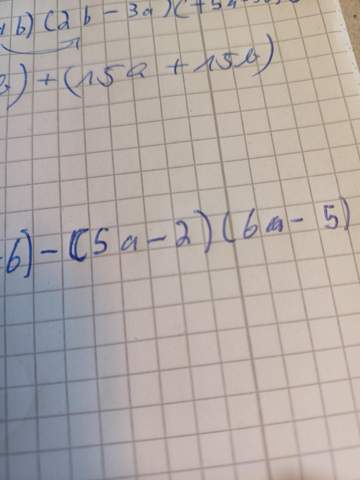 b) (2b - 3a) (+5a
) + (15a + 15b)
6) - (5a - 2) (6a - 5)